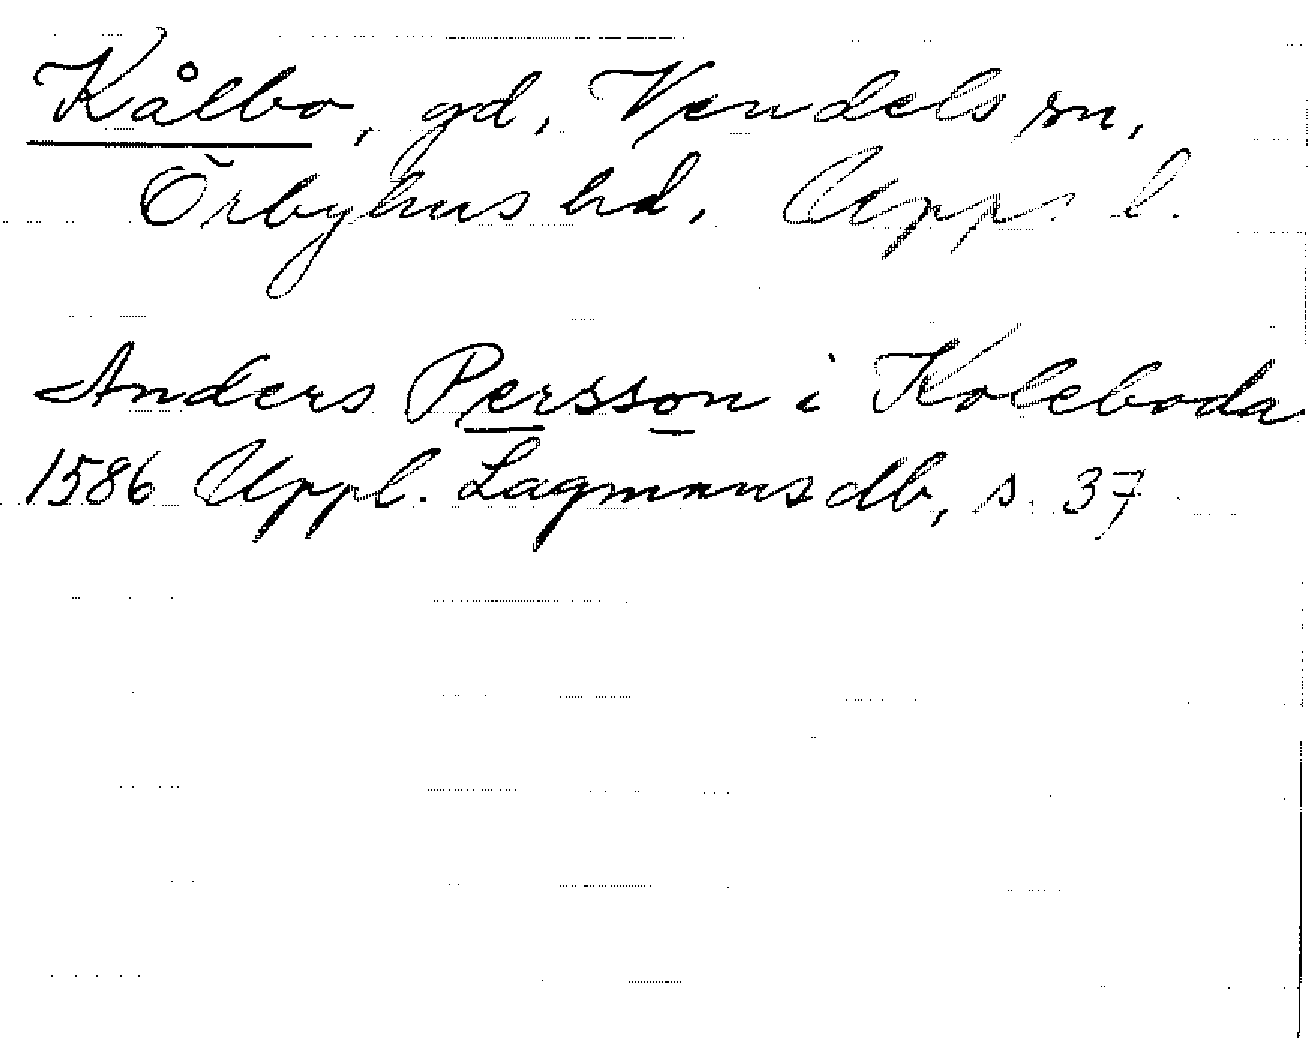 Kålbo, gd, Vendels sn,
Örbyhus hd, Upps. l.
Anders Persson i Koleboda
1586 Uppl. Lagmansdb, s. 37